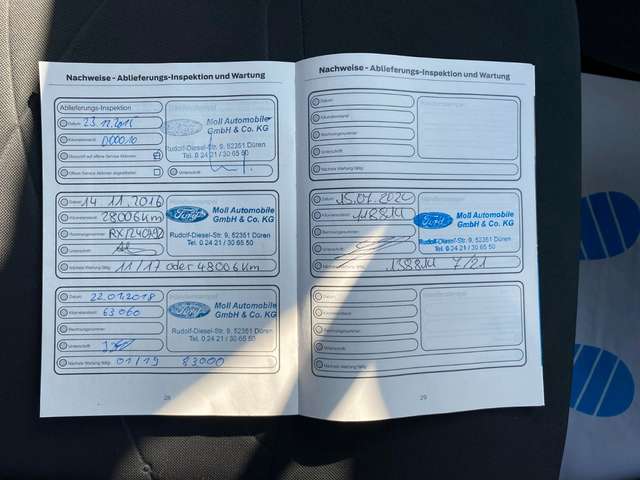 Nachweise - Ablieferungs-Inspektion und Wartung
Ablieferungs-Inspektion
Datum
Kilometerstand 000010
Überprüft auf offene Service Aktionen
Offene Service Aktionen abgearbeitet
Unterschrift
Moll Automobile
GmbH & Co. KG
Rudolf-Diesel-Str. 9, 52351 Düren
Tel. 0 24 21 / 30 65 50
Datum 14 11.2016
Kilometerstand 28006 Km
Rechnungsnummer
Unterschrift
Nächste Wartung fällig 11/17 oder 48006 Km
Ford
Moll Automobile
GmbH & Co. KG
Rudolf-Diesel-Str. 9, 52351 Düren
Tel. 0 24 21 / 30 65 50
Datum 22.01.2018
Kilometerstand 63060
Rechnungsnummer
Unterschrift
Nächste Wartung fällig 01/19 83000
Ford
Moll Automobile
GmbH & Co. KG
Rudolf-Diesel-Str. 9, 52351 Düren
Tel. 0 24 21 / 30 65 50
28
Nachweise - Ablieferungs-Inspektion und Wartung
Datum
Kilometerstand
Rechnungsnummer
Unterschrift
Nächste Wartung fällig
Datum 15.07.2020
Kilometerstand 118814
Rechnungsnummer
Unterschrift
Nächste Wartung fällig 138814 7/21
Ford
Moll Automobile
GmbH & Co. KG
Rudolf-Diesel-Str. 9, 52351 Düren
Tel. 0 24 21 / 30 65 50
Datum
Kilometerstand
Rechnungsnummer
Unterschrift
Nächste Wartung fällig
29